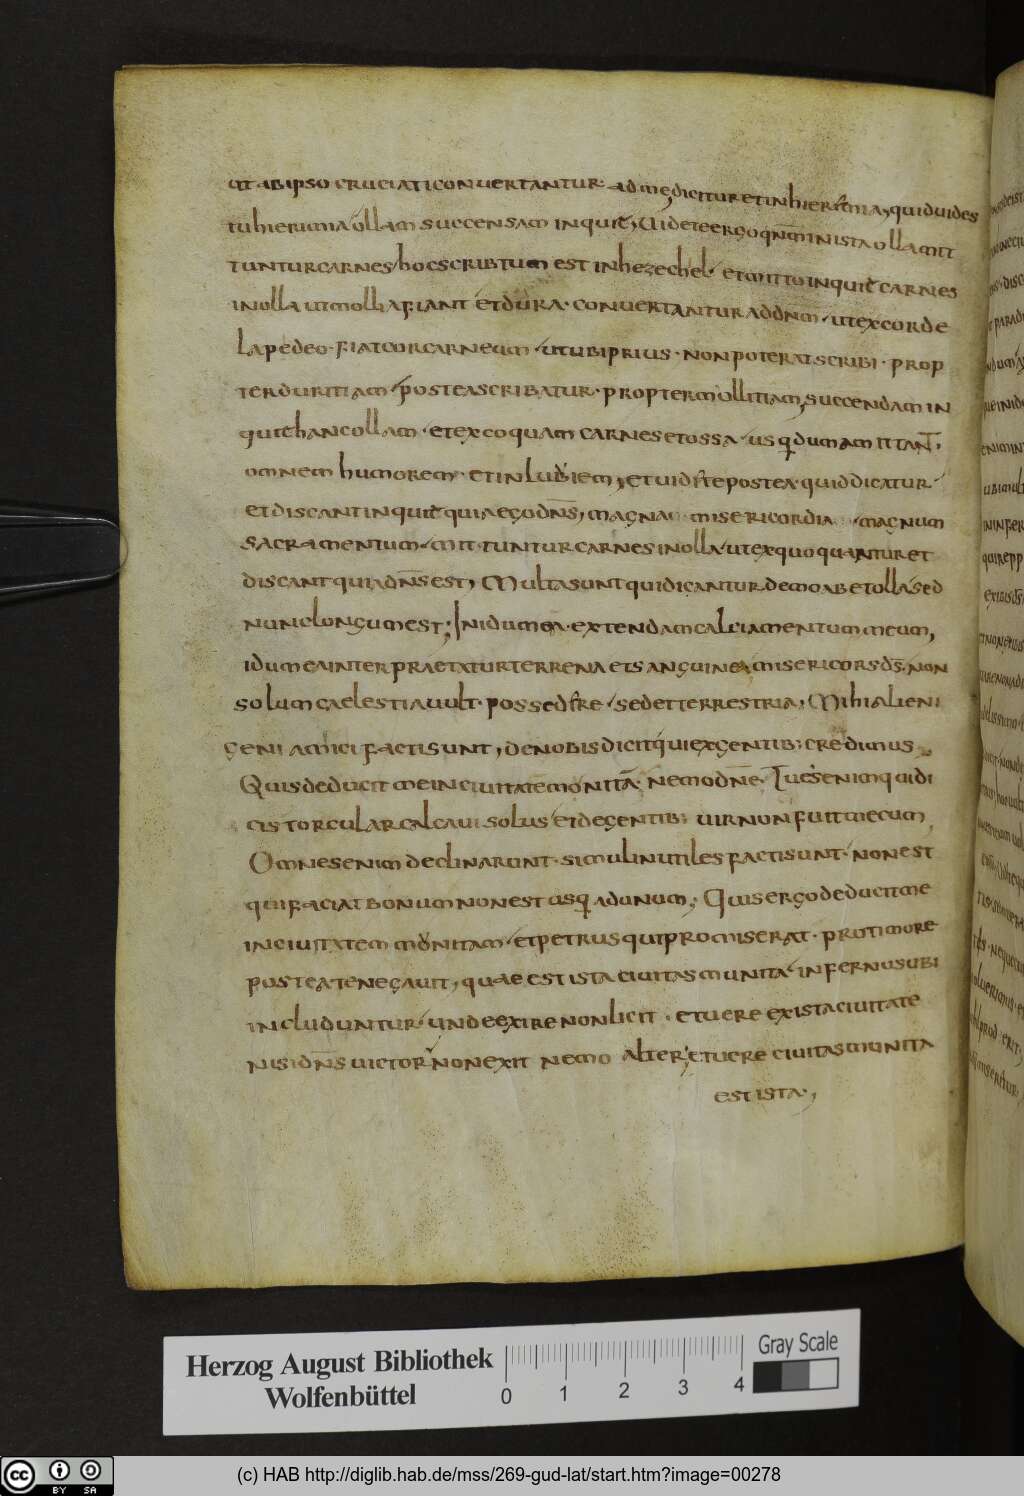 ut ab ipso cruciati conuertantur. ad me dicitur et in hieremia, quid uides
tu hieremia ollam succensam inquit, Uidete ergo qnm in ista olla mit
tuntur carnes hoc scribtum est in hezechel et mitto inquit carnes
in olla ut mollia fiant et dura. conuertantur ad dnm ut ex corde
lapedeo. fiat cor carneum ut ubi prius. non poterat scribi. prop
ter duritiam posteascribatur. propter mollitiam, succendam in
quit hanc ollam. et excoquam carnes et ossa. usq dum amittant.
omnem humorem. et inlubiem, et uidete postea. quid dicatur
et discant inquit quia ego dns, magna misericordia magnum
sacramentum. mittuntur carnes in olla ut exquoquantur et
discant quia dns est, Multa sunt qui dicantur de moab et olla sed
nunc longum est; In idumea. extendam calciamentum meum,
idumea interpraetatur terrena et sanguinea misericors ds. non
solum caelestia uult. possedere sed et terrestria, Mihi alieni
geni amici facti sunt, de nobis dicit qui ex gentib; credimus
Quis deducit me in ciuitatem monitā. nemo dne. Tu es enim qui di
cis torcular calcaui solus et de gentib; uir non fuit mecum
Omnes enim declinarunt. simul inutiles facti sunt. non est
qui faciat bonum non est usq ad unum, Quis ergo deducit me
in ciuitatem monitam. et petrus qui promiserat. pro timore
postea te negauit, quae est ista ciuitas munita infernus ubi
includuntur unde exire non licit. et uere ex ista ciuitate
nisi dns uictor non exit nemo alter, et uere ciuitas munita
est ista.,
Herzog August Bibliothek
Wolfenbüttel
0 1 2 3 4
Gray Scale
cc BY SA
(c) HAB http://diglib.hab.de/mss/269-gud-lat/start.htm?image=00278